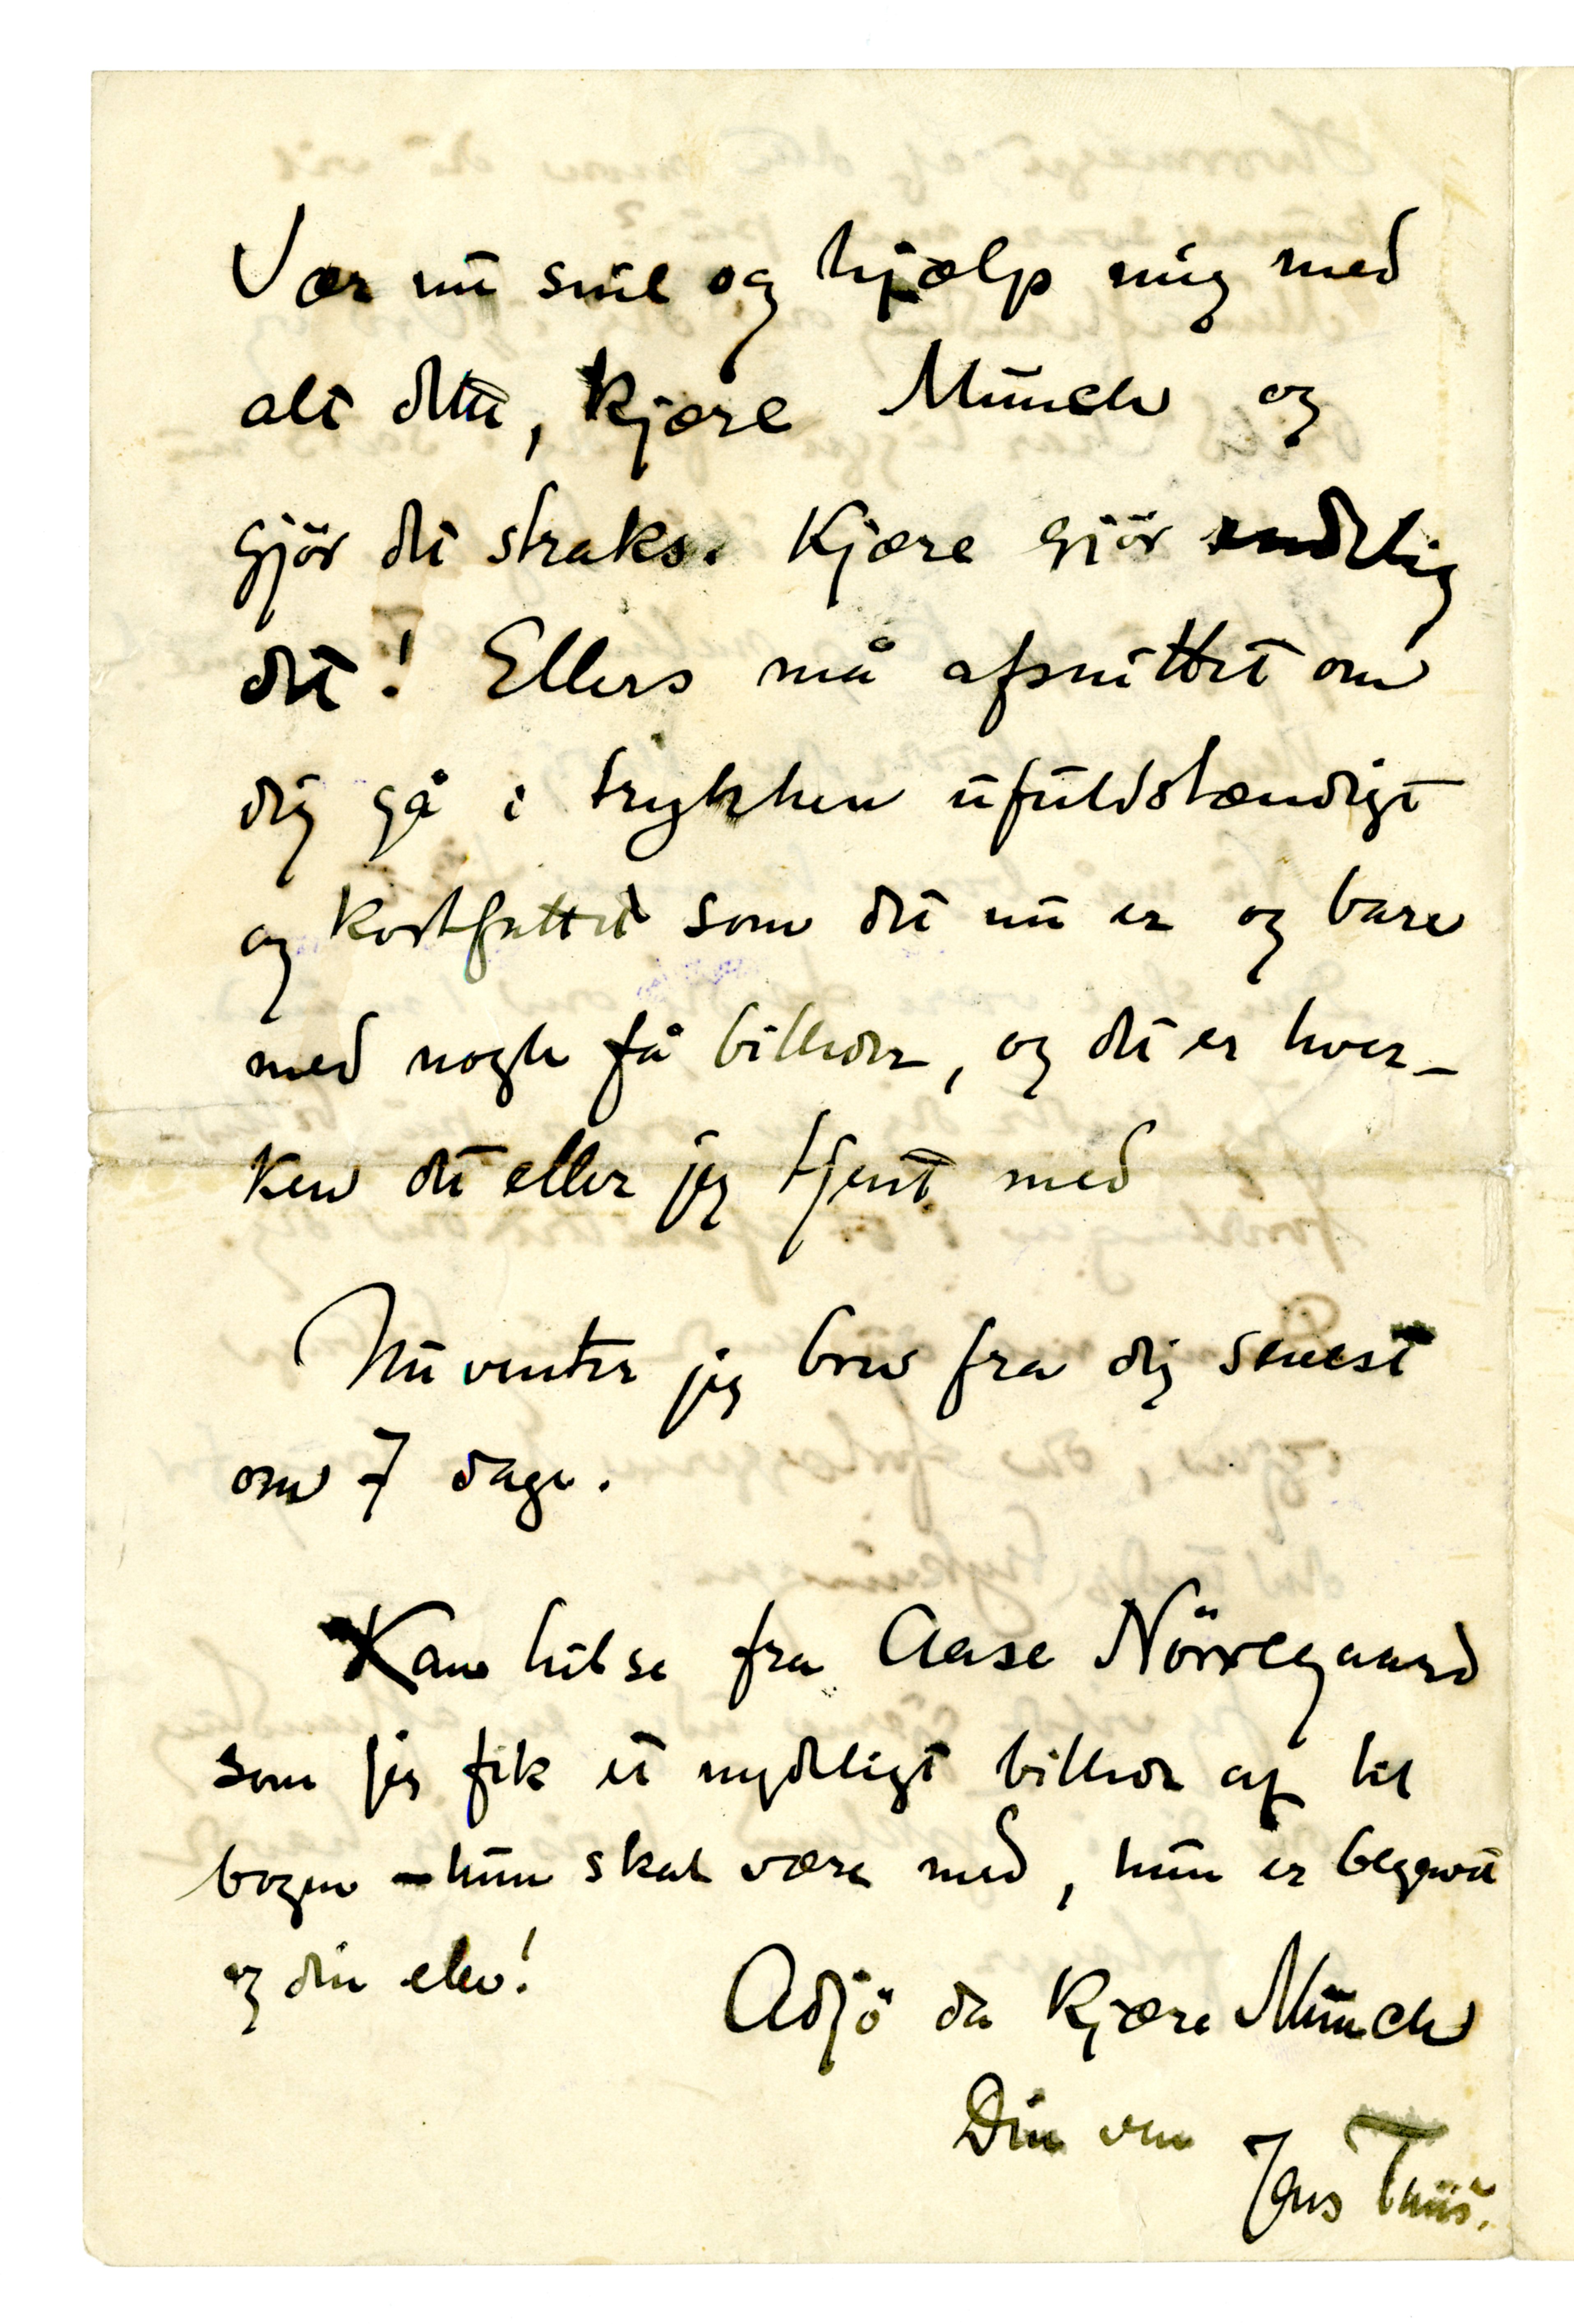 Vær nu snil og hjælp mig med
alt dette, kjære Munch og
gjör det straks. Kjære gjör endelig
det! Ellers må afsnittet om
dig gå i trykken ufuldstændigt
og kortfattet som det nu er og bare
med nogle få billeder, og det er hver-
ken det eller jeg tjent med
Nu venter jeg brev fra dig senest
om 7 dage.
Kan hilse fra Aase Nörregaard
som jeg fik et nydeligt billede af til
bogen – hun skal være med, hun er begavet
og din elev!
Adjö da kjære Munch
Din ven
Jens Thiis.